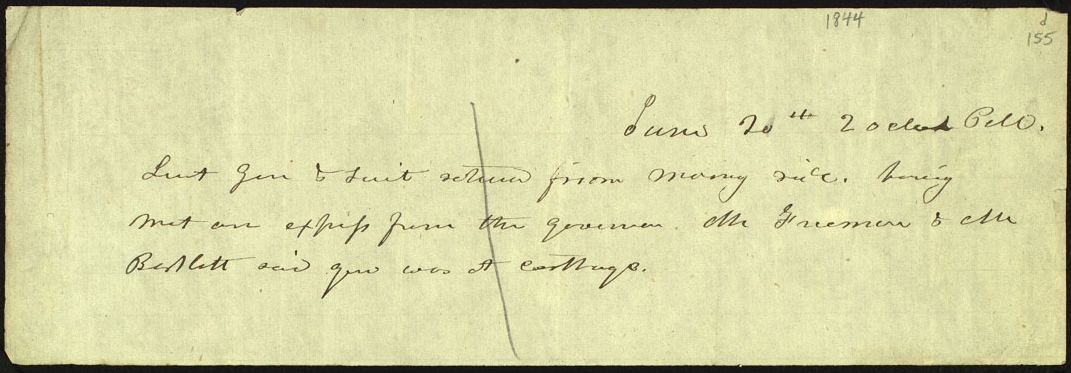 1844
d
155
June 20th 2 oclock P M.
Lieut Gen & suit return from          having
met an express from the governor Mr Freeman & Mr
Bartlett said gov was at carthage.